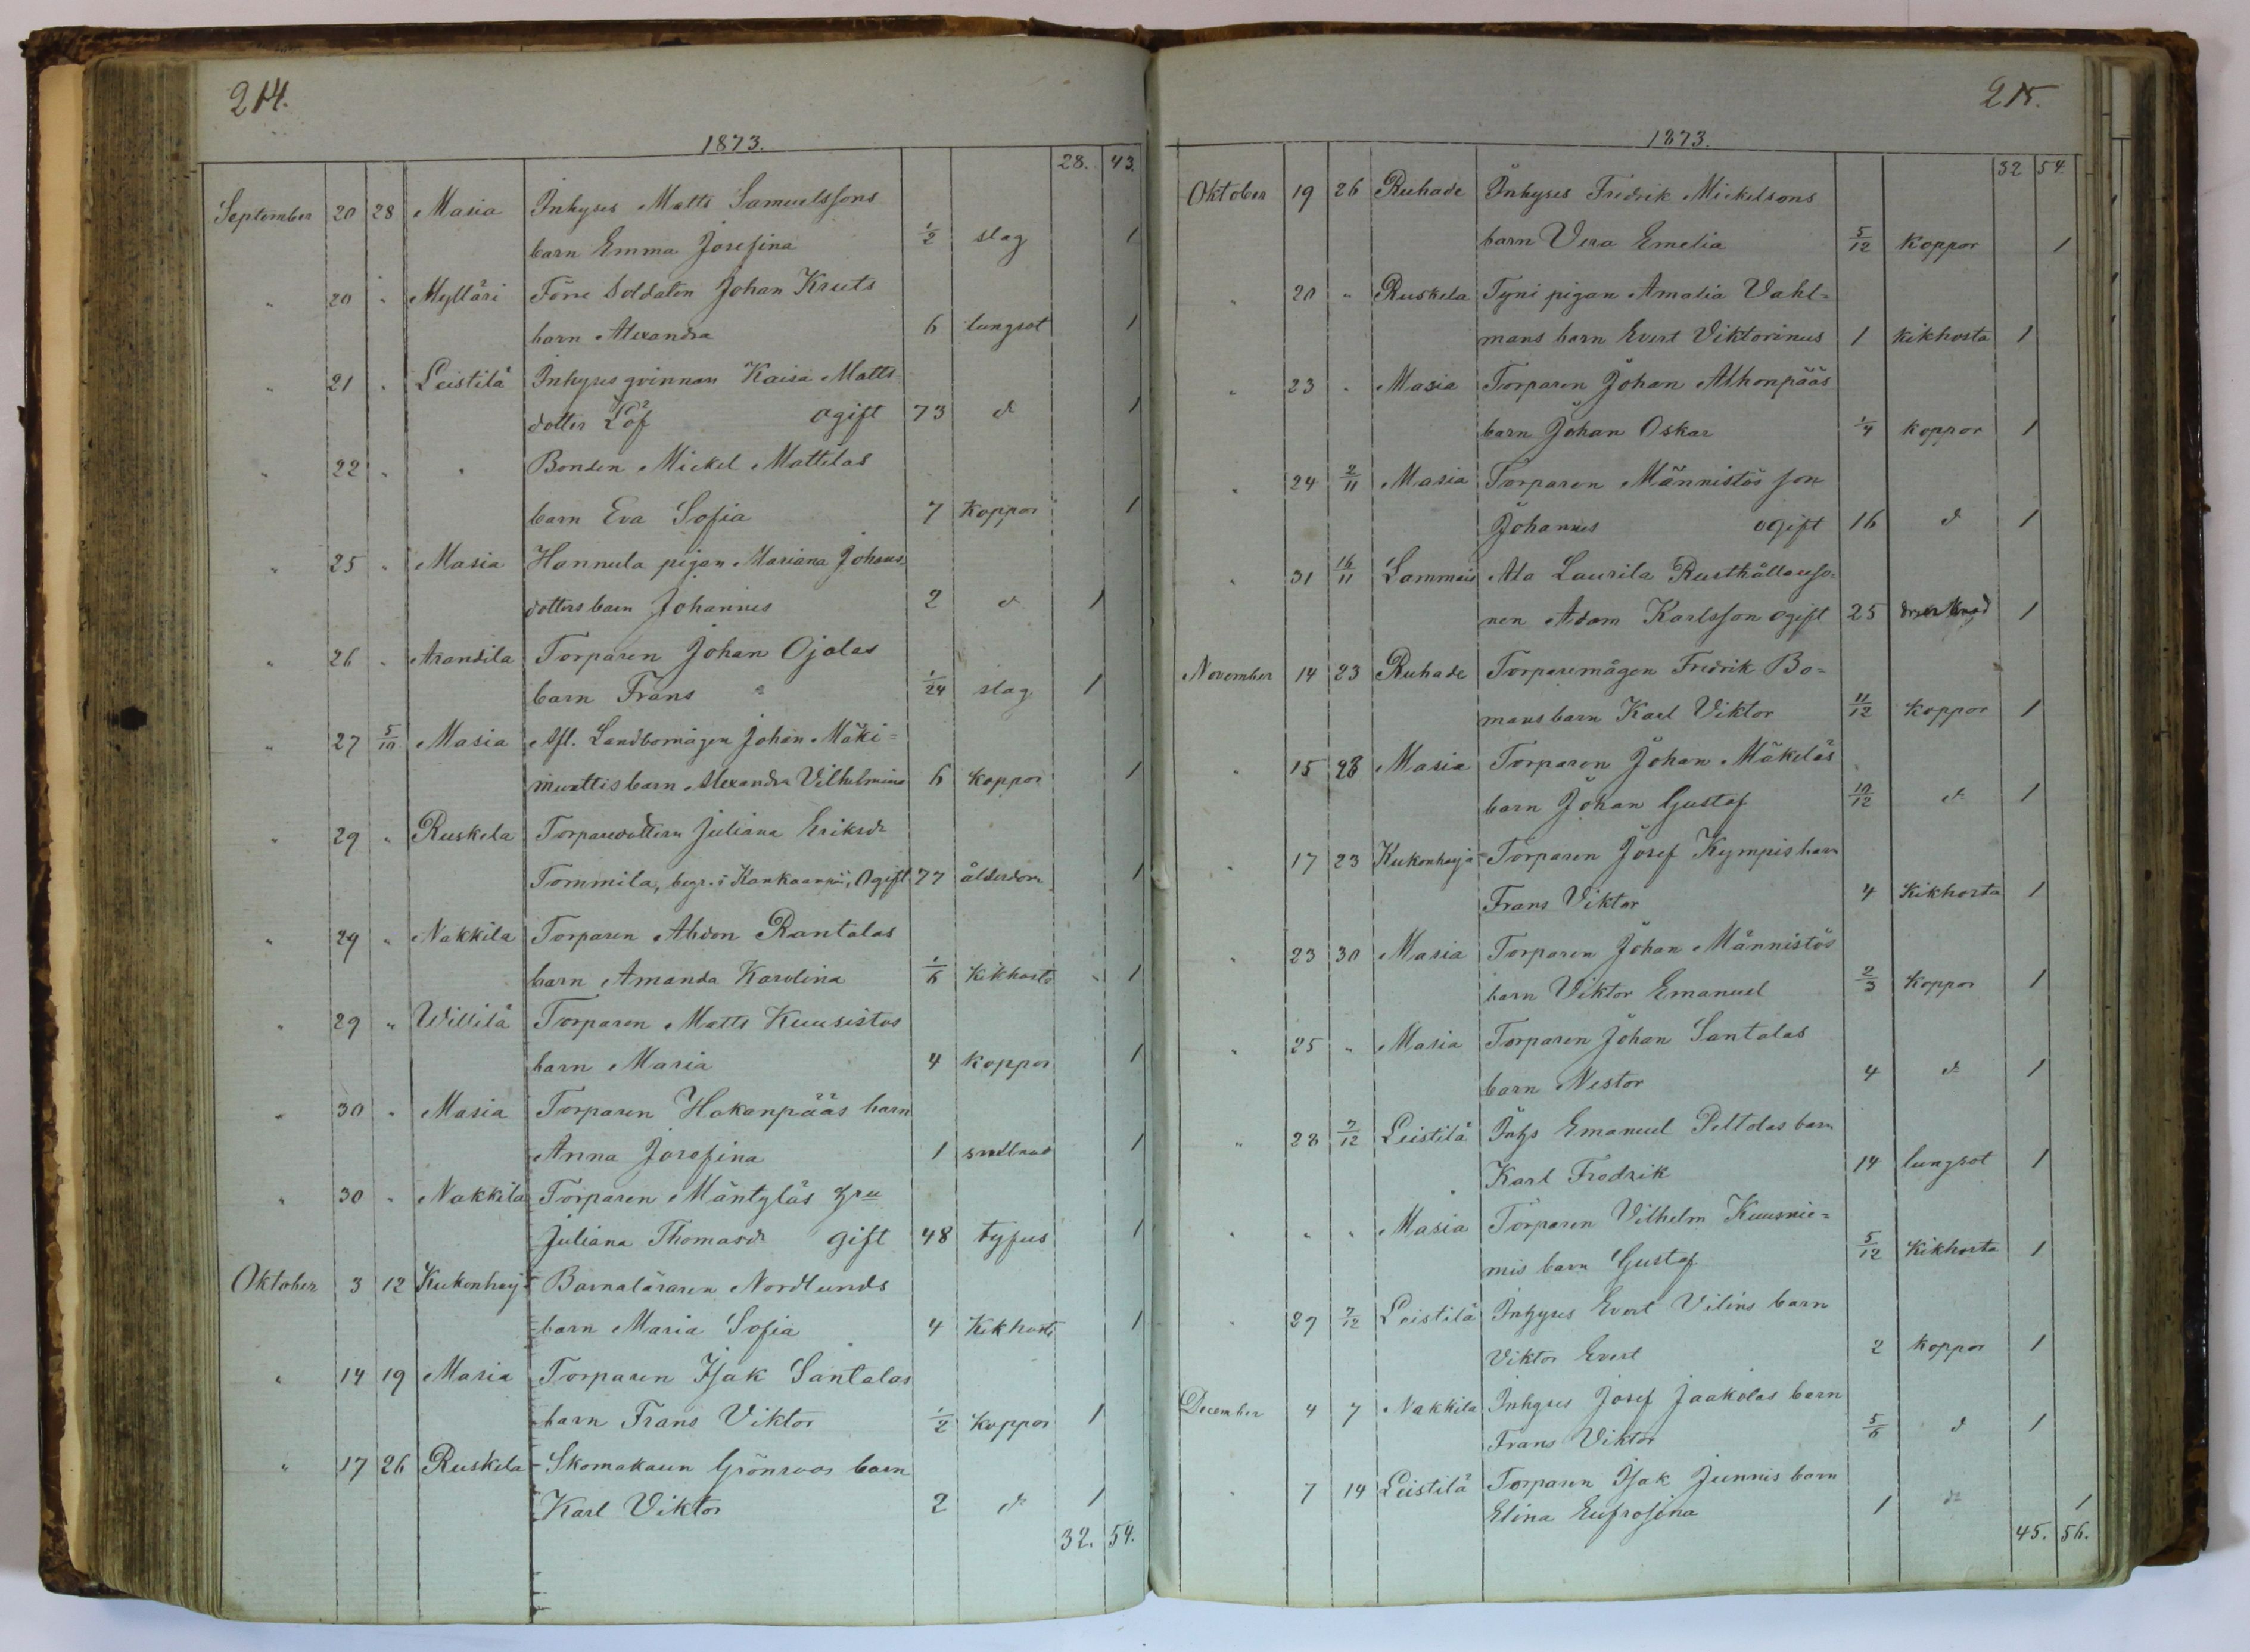 214.
1873.
28. 43.
September 20 28 Masia Inhyses Matts Samuelssons
barn Emma Josefina 1/2 slag 1
" 20 " Mylläri Förre Soldaten Johan Kruts
barn Alexandra 6 lungsot 1
" 21 " Leistilä Inhyses qvinnan Kaisa Matts
dotter Löf ogift 73 d 1
" 22 " " Bonden Mickel Mattilas
barn Eva Sofia 7 Koppor 1
" 25 " Masia Hannula pigan Mariana Johans
dotters barn Johannes 2 d 1
" 26 " Arandila Torparen Johan Ojalas
barn Frans 1/24 slag 1
" 27 5/10 Masia Afl. Landbomågen Johan Mäki=
muattis barn Alexandra Vilhelmina 6 Koppor 1
" 29 " Ruskela Torparedottern Juliana Eriksdr
Tommila, begr. i Kankaanpää, Ogift 77 ålderdom 1
" 29 " Nakkila Torparen Ahdon Rantalas
barn Amanda Karolina 1/6 Kikhosta 1
" 29 " Willilä Torparen Matts Kuusistos
barn Maria 4 Koppor 1
" 30 " Masia Torparen Hakanpääs barn
Anna Josefina 1 1
" 30 " Nakkila Torparen Mäntyläs hru
Juliana Thomasdr gift 48 tyfus 1
Oktober 3 12 Kukonharja Barnaläraren Nordlunds
barn Maria Sofia 4 Kikhosta 1
" 14 19 Masia Torparen Isak Santalas
barn Frans Viktor 1/2 Koppor 1
" 17 26 Ruskela Skomakaren Grönroos barn
Karl Viktor 2 d 1
32. 54.
215.
1873.
32 54
Oktober 19 26 Ruhade Inhyses Fredrik Mickelsons
barn Vera Emelia 5/12 Koppor 1
" 20 " Ruskela Tyni pigan Amalia Vahl=
mans barn Evert Viktorinus 1 Kikhosta 1
" 23 " Masia Torparen Johan Alhonpääs
barn Johan Oskar 1/4 Koppor 1
" 24 2/11 Masia Torparen Männistös son
Johannes ogift 16 d 1
" 31 16/11 Lammais Ala Laurila Rusthållareso-
nen Adam Karlsson ogift 25 drunknad 1
November 14 23 Ruhade Torparemågen Fredrik Bo=
mans barn Karl Viktor 11/12 Koppor 1
" 15 23 Masia Torparen Johan Mäkeläs
barn Johan Gustaf 10/12 d 1
" 17 23 Kukonharja Torparen Josef Kympis barn
Frans Viktor 4 Kikhosta 1
" 23 30 Masia Torparen Johan Männistös
barn Viktor Emanuel 2/3 Koppor 1
" 25 " Masia Torparen Johan Santalas
barn Nestor 4 d 1
" 28 7/12 Leistilä Inhs Emanuel Peltolas barn
Karl Fredrik 14 lungsot 1
" " " Masia Torparen Vilhelm Kuusnie=
mis barn Gustaf 5/12 Kikhosta 1
" 29 7/12 Leistilä Inhyses Evert Viléns barn
Viktor Evert 2 Koppor 1
December 4 7 Nakkila Inhyses Josef Jaakolas barn
Frans Viktor 5/6 d 1
" 7 14 Leistilä Torparen Isak Junnis barn
Elina Eufrosina 1 d 1
45. 56.